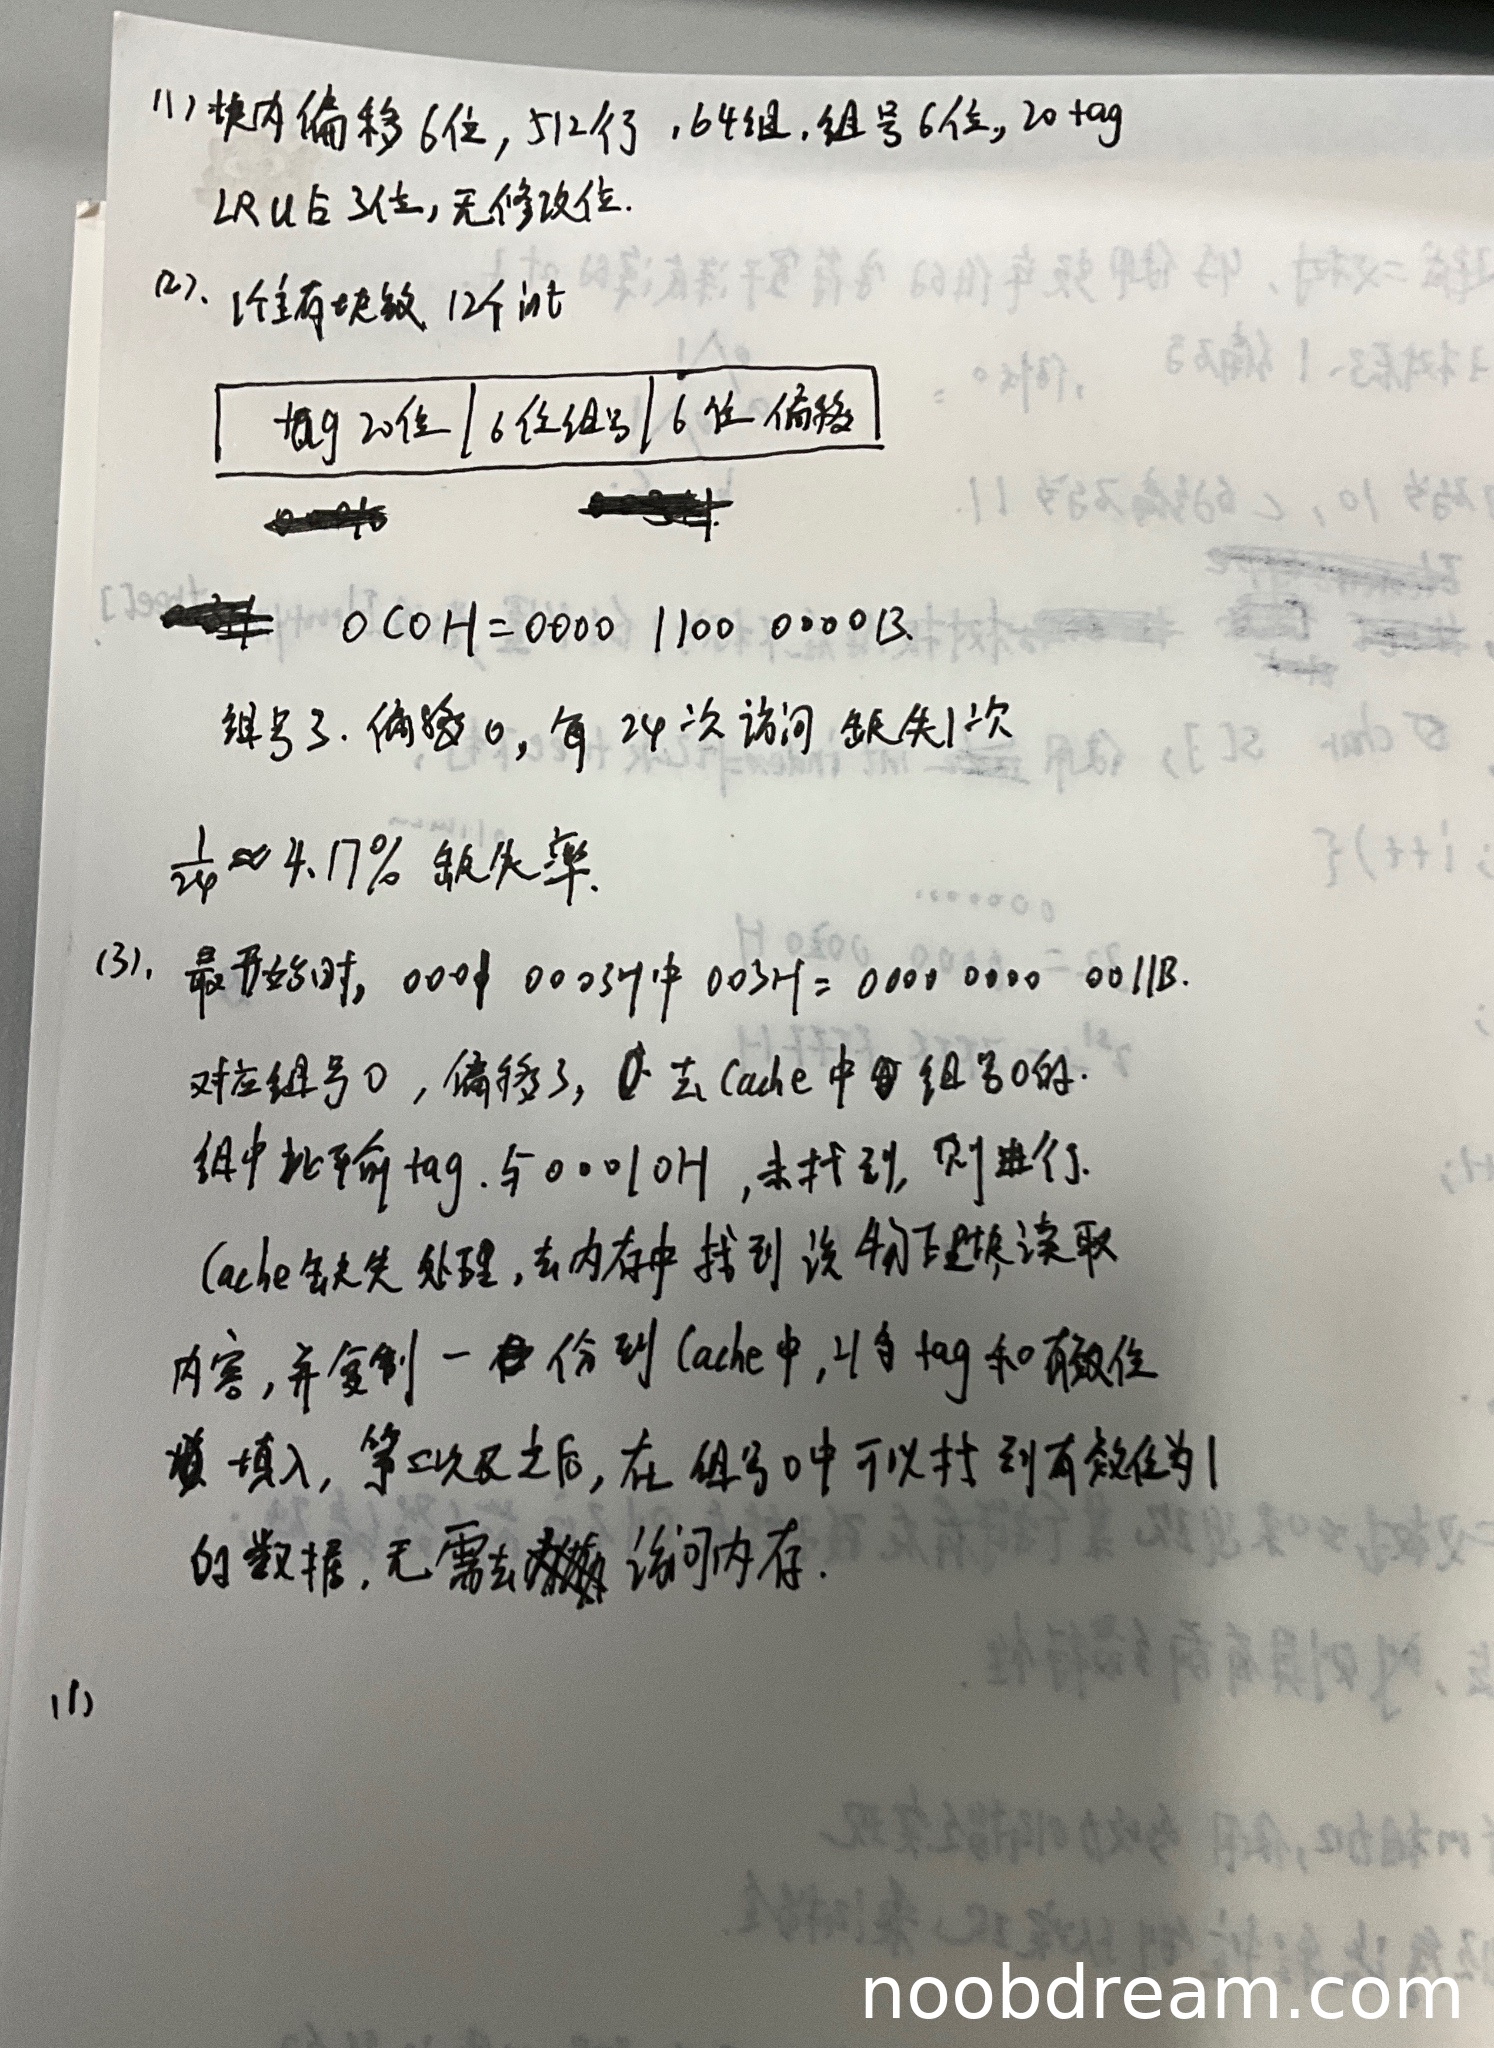 (1) 块内偏移6位, 512行, 64组, 组号6位, 20 tag
LRU占3位, 无修改位.
(2). 1个主存块放 12个int
tag 20位 | 6位组号 | 6位 偏移
0C0H = 0000 1100 0000B.
组号3. 偏移0, 每 24次访问 缺失1次
1/24 ≈ 4.17% 缺失率.
(3). 最开始时, 0001 0003H中 003H = 0000 0000 0011B.
对应组号0, 偏移3, 去Cache中 组号0的.
组中 tag. 与00010H, 未找到, 则进行.
Cache缺失处理, 去内存中找到该物理块, 读取
内容, 并复制一份到Cache中, 将tag和有效位
填入, 第二次及之后, 在组号0中可以找到有效位为1
的数据, 无需去 访问内存.
(1)
noobdream.com